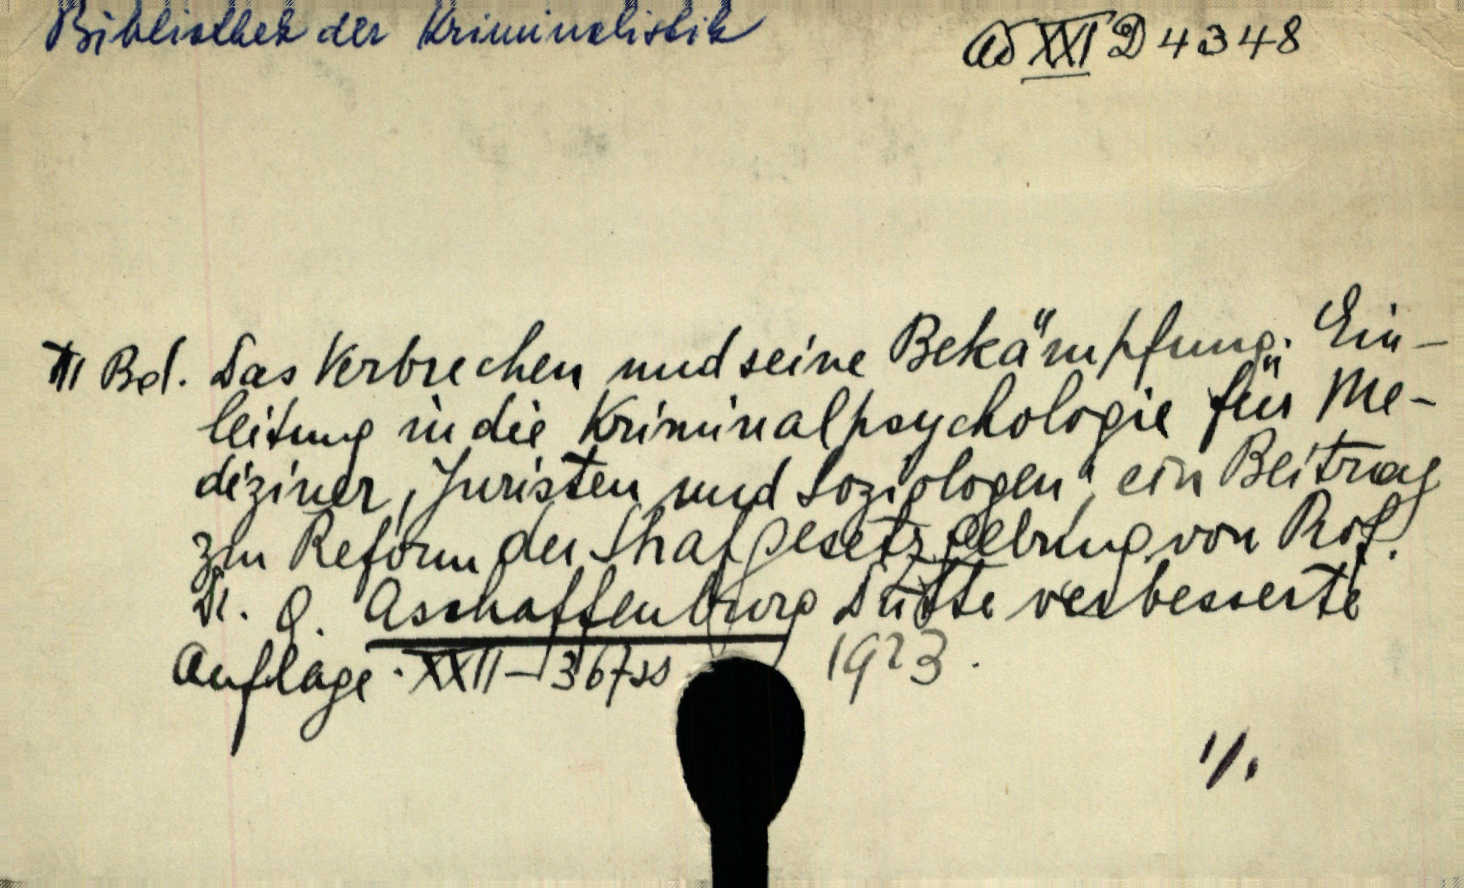 Bibliothek der Kriminalistik
ad XXI D 4348
III Bd. Das Verbrechen und seine Bekämpfung. Ein-
leitung in die Kriminalpsychologie für Me-
diziner, Juristen und Soziologen, ein Beitrag
zur Reform der Strafgesetzgebung von Prof.
Dr. G. Aschaffenburg Dritte verbesserte
Auflage. XXII - 367 ss 1923.
1/1